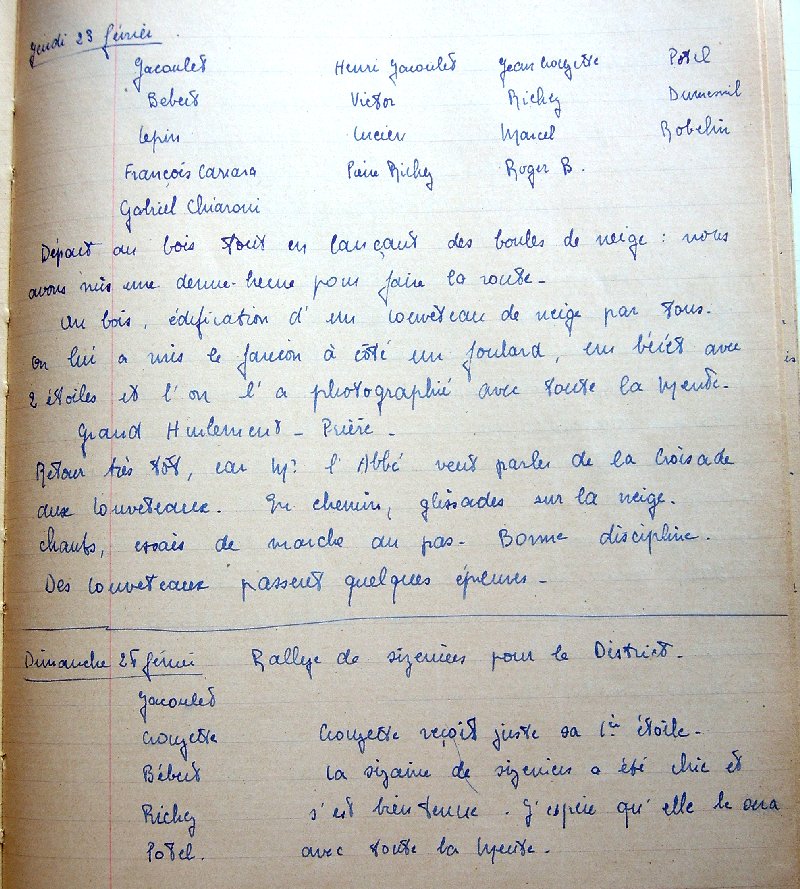 Jeudi 23 février
Jacoulet Henri Jacoulet Jean Crouzette Potel
Bébert Victor Richey Dumesnil
Lepin Lucien Marcel Robelin
François Carrara Pierre Richey Roger B.
Gabriel Chiaroni
Départ au bois tout en lançant des boules de neige : nous
avons mis une demie-heure pour faire la route -
Au bois, édification d'un louveteau de neige par tous.
On lui a mis le fanion à côté un foulard, un béret avec
2 étoiles et l'on l'a photographié avec toute la Meute -
Grand Hurlement - Prière -
Retour très tôt, car Mr l'Abbé veut parler de la Croisade
aux louveteaux. En chemin, glissades sur la neige.
chants, essais de marche au pas - Bonne discipline.
Des louveteaux passent quelques épreuves -
Dimanche 25 février Rallye de sizeniers pour le District -
Jacoulet
Crouzette Crouzette reçoit juste sa 1ère étoile -
Bébert La sizaine de sizeniers a été chic et
Richey s'est bien tenue. J'espère qu'elle le sera
Potel. avec toute la Meute -